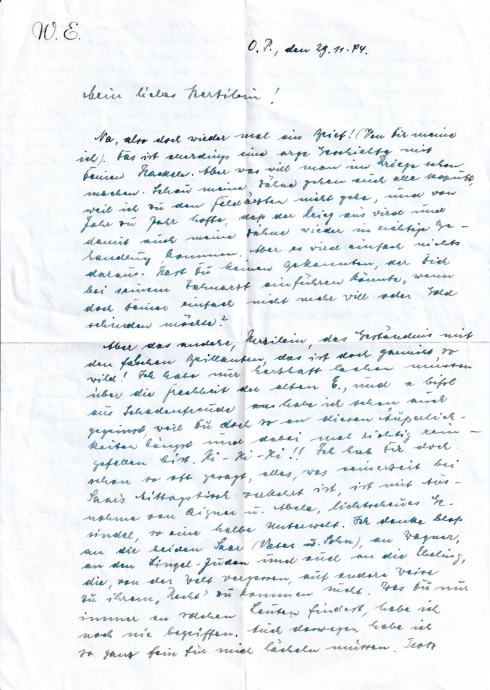 W. E.
O. P., den 29.11.44.
Mein liebes Herzilein!
Na, also doch wieder mal ein Brief! (Von Dir meine
ich). Das ist allerdings eine arge Geschichte mit
Deinen Aber was will man im Kriege schon
machen. Schau meine Zähne gehen auch alle kaputt,
weil ich zu den Feldärzten nicht gehe, und von
Jahr zu Jahr hoffe, daß der Krieg aus wird und
damit auch meine Zähne wieder in richtige Be-
handlung kommen. Aber es wird einfach nichts
daraus. Hast Du keinen Bekannten, der Dich
bei seinem Zahnarzt einführen könnte, wenn
doch Deiner einfach nicht mehr will oder Geld
schinden möchte?
Aber das andere, Herzilein, das Geständnis mit
den falschen Brillanten, das ist doch
wild! Ich habe nur herzhaft lachen müssen
über die Frechheit der alten E., und a bißl
aus Schadenfreude habe ich schon auch
gegrinst weil Du doch so an diesen Äußerlich-
keiten hängst und dabei mal richtig rein-
gefallen bist. Hi-Hi-Hi!! Ich hab Dir doch
schon so oft gesagt, alles, was seinerzeit bei
Saars Mittagstisch verkehrt ist, ist mit Aus-
nahme von Aigner u. lichtscheues Ge-
sindel, so eine halbe Unterwelt. Ich denke bloß
an die beiden Saar (Vater u. Sohn), an Wagner,
an den Juden und auch an die
die, von der Welt vergessen, auf andere Weise
zu ihrem "Recht" zu kommen sucht. Was Du nur
immer an solchen Leuten findest, habe ich
noch nie begriffen. Auch deswegen habe ich
so ganz fein für mich lächeln müssen. Trotz